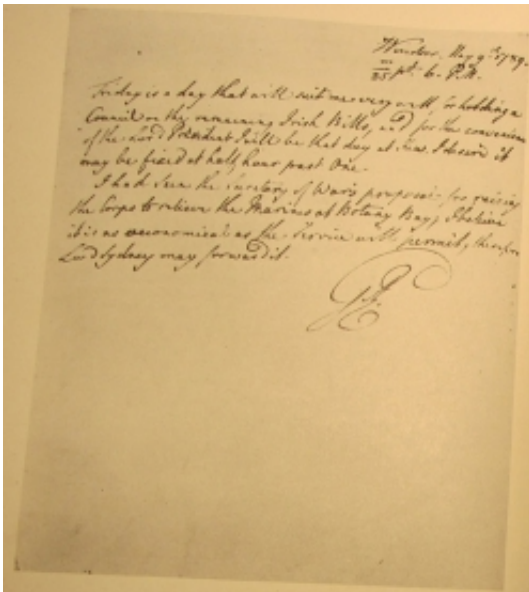 Windsor. May 9th 1789.
m/25 pt. 6. P.M.
Friday is a day that will suit me very well for holding a
Council on the remaining Irish Bills, and for the convenience
of the Lord President I will be that day at I desire it
may be fixed at half hour past One.
I had seen the Secretary of War's proposal for raising
the Corps to relieve the Marines at Botany Bay; I believe
it is as oeconomical as the Service will permit, therefore
Lord Sydney may forward it.
GR